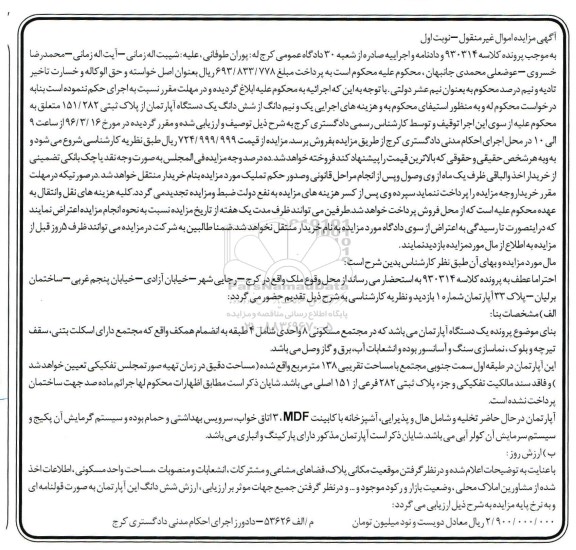 آگهی مزایده اموال غیر منقول – نوبت اول
به موجب پرونده کلاسه ۹۳۰۳۱۴ و دادنامه و اجراییه صادره از شعبه ۳۰ دادگاه عمومی کرج له: پوران طوفانی، علیه: شیبت اله زمانی – آیت اله زمانی – محمدرضا
خسروی – عوضعلی محمدی جانبهان، محکوم علیه محکوم است به پرداخت مبلغ ۶۹۳/۸۳۳/۷۷۸ ریال بعنوان اصل خواسته و حق الوکاله و خسارت تاخیر
تادیه و نیم درصد محکوم به بعنوان نیم عشر دولتی. با توجه به این که اجرائیه به محکوم علیه ابلاغ گردیده و در مهلت مقرر نسبت به اجرای حکم ننموده است بنا به
درخواست محکوم له و به منظور استیفای محکوم به و هزینه های اجرایی یک و نیم دانگ از شش دانگ یک دستگاه آپارتمان از پلاک ثبتی ۱۵۱/۲۸۲ متعلق به
محکوم علیه از سوی این اجرا توقیف و توسط کارشناس رسمی دادگستری کرج به شرح ذیل توصیف و ارزیابی شده و مقرر گردیده در مورخ ۹۶/۳/۱۶ از ساعت ۹
الی ۱۰ در محل اجرای احکام مدنی دادگستری کرج از طریق مزایده بفروش برسد. مزایده از قیمت ۷۲۴/۹۹۹/۹۹۹ ریال طبق نظریه کارشناسی شروع می شود و
به وبه هر شخص حقیقی و حقوقی که بالاترین قیمت را پیشنهاد کند فروخته خواهد شد. ده درصد وجه مزایده فی المجلس به صورت وجه نقد یا چک بانکی تضمینی
از خریدار اخذ والباقی ظرف یک ماه از وی وصول و پس از انجام مراحل قانونی و صدور حکم تملیک مورد مزایده بنام خریدار منتقل خواهد شد. در صورتیکه در مهلت
مقرر خریدار وجه مزایده را پرداخت ننماید سپرده وی پس از کسر هزینه های مزایده به نفع دولت ضبط و مزایده تجدید می گردد. کلیه هزینه های نقل وانتقال به
عهده محکوم علیه است که از محل فروش پرداخت خواهد شد. طرفین می توانند ظرف مدت یک هفته از تاریخ مزایده نسبت به نحوه انجام مزایده اعتراض نمایند
که در اینصورت تا رسیدگی به اعتراض از سوی دادگاه مورد مزایده به نام خریدار منتقل نخواهد شد. ضمنا طالبین به شرکت در مزایده می توانند ظرف ۵ روز قبل از
مزایده به اطلاع از مال مورد مزایده بازدید نمایند.
مال مورد مزایده و بهای آن طبق نظر کارشناس بدین شرح است:
احتراما عطف به پرونده کلاسه ۹۳۰۳۱۴ به استحضار می رساند از محل وقوع ملک واقع در کرج – رجایی شهر – خیابان آزادی – خیابان پنجم غربی – ساختمان
برلیان – پلاک ۳۳ آپارتمان شماره ۱ بازدید و نظریه کارشناسی به شرح ذیل تقدیم حضور می گردد:
الف) مشخصات بنا:
بنای موضوع پرونده یک دستگاه آپارتمان می باشد که در مجتمع مسکونی ۸ واحدی شامل ۴ طبقه به انضمام همکف واقع که مجتمع دارای اسکلت بتنی، سقف
تیرچه و بلوک، نماسازی سنگ و آسانسور بوده و انشعابات آب، برق و گاز وصل می باشد.
این آپارتمان در طبقه اول سمت جنوبی مجتمع با مساحت تقریبی ۱۳۸ مترمربع واقع شده (مساحت دقیق در زمان تهیه صورتمجلس تفکیکی تعیین خواهد شد
) و فاقد سند مالکیت تفکیکی و جزء پلاک ثبتی ۲۸۲ فرعی از ۱۵۱ اصلی می باشد. شایان ذکر است مطابق اظهارات محکوم لها جرائم ماده صد جهت ساختمان
پرداخت نشده است.
آپارتمان در حال حاضر تخلیه و شامل هال و پذیرایی، آشپزخانه با کابینت MDF، ۳ اتاق خواب، سرویس بهداشتی و حمام بوده و سیستم گرمایش آن پکیج و
سیستم سرمایش آن کولر آبی می باشد. شایان ذکر است آپارتمان مذکور دارای پارکینگ و انباری می باشد.
ب) ارزش روز:
با عنایت به توضیحات اعلام شده و در نظر گرفتن موقعیت مکانی پلاک، فضاهای مشاعی و مشترکات، انشعابات و منصوبات، مساحت واحد مسکونی، اطلاعات اخذ
شده از مشاورین املاک محلی، وضعیت بازار و رکود موجود و ... و در نظر گرفتن جمیع جهات موثر بر ارزیابی، ارزش شش دانگ این آپارتمان به صورت قولنامه ای
و به نرخ پایه مزایده به شرح ذیل ارزیابی می گردد:
۲/۹۰۰/۰۰۰/۰۰۰ ریال معادل دویست و نود میلیون تومان
م/الف ۵۳۶۲۶ – دادورز اجرای احکام مدنی دادگستری کرج